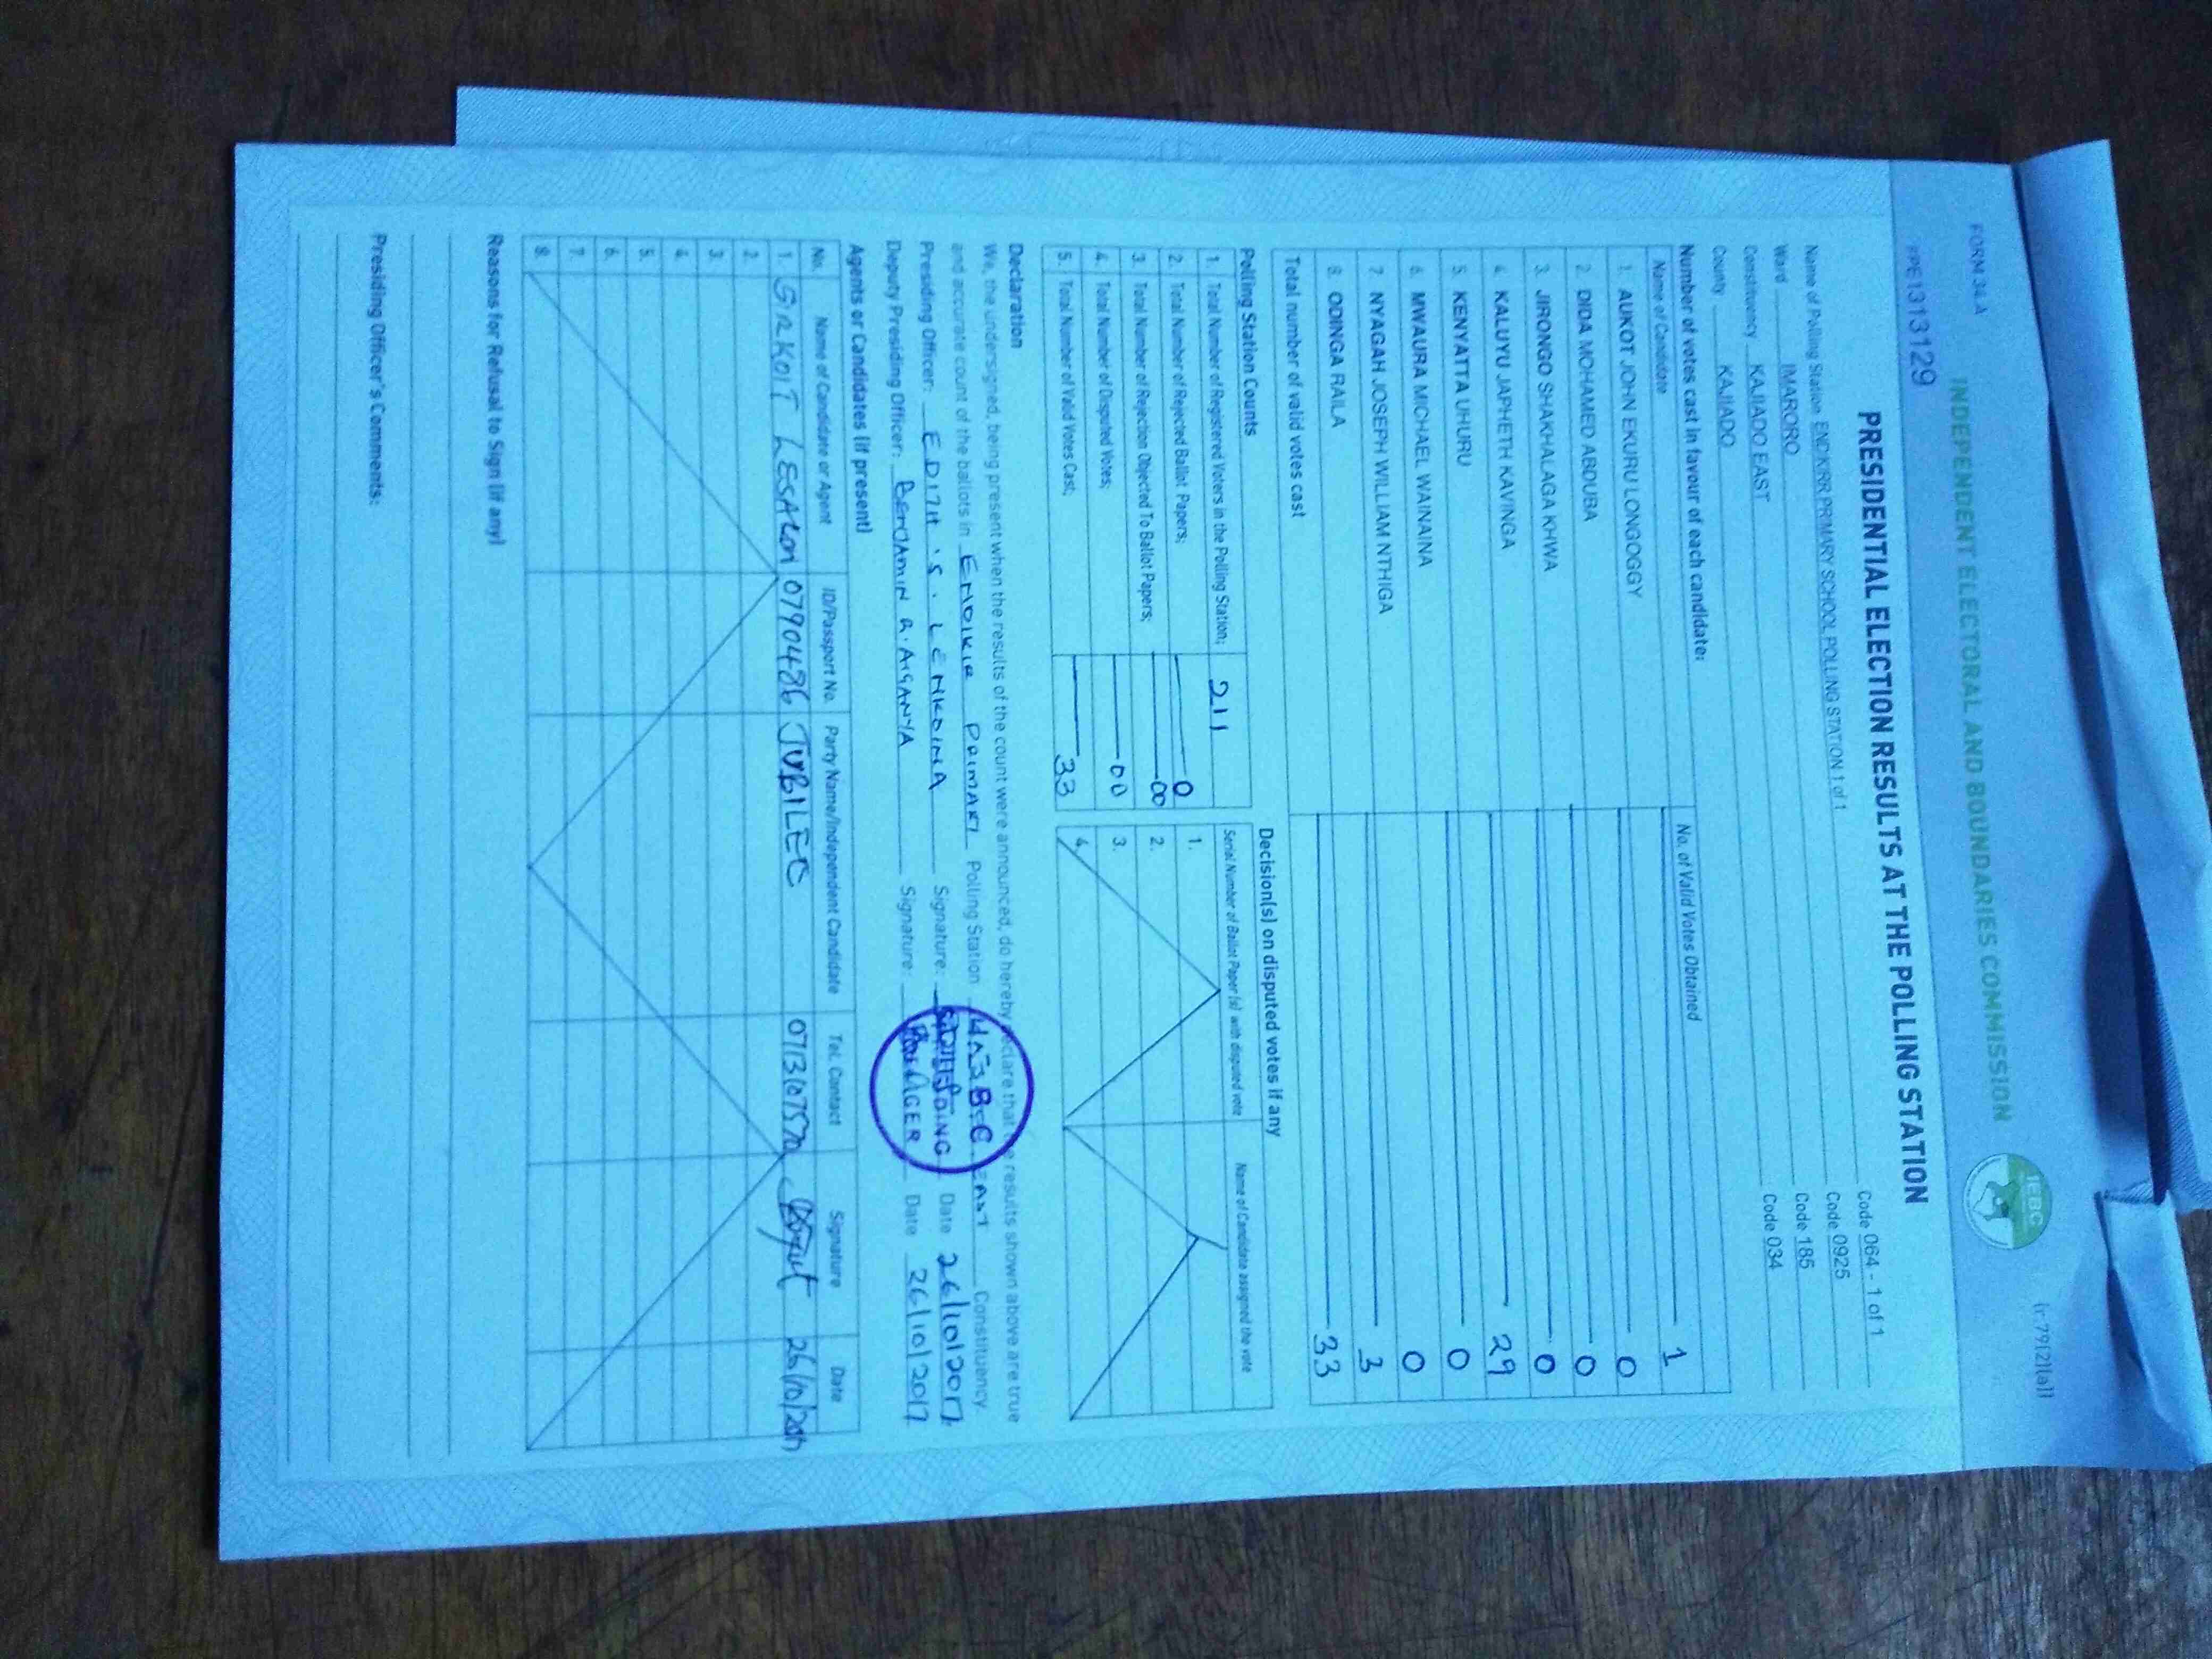 FORM 34A
(r.79(2)(a))
INDEPENDENT ELECTORAL AND BOUNDARIES COMMISSION
IEBC
PPE1313129
PRESIDENTIAL ELECTION RESULTS AT THE POLLING STATION
Name of Polling Station ENDIKIRR PRIMARY SCHOOL POLLING STATION 1 of 1 Code 064 - 1 of 1
Ward IMARORO Code 0925
Constituency KAJIADO EAST Code 185
County KAJIADO Code 034
Number of votes cast in favour of each candidate:
Name of Candidate No. of Valid Votes Obtained
1. AUKOT JOHN EKURU LONGOGGY 1
2. DIDA MOHAMED ABDUBA 0
3. JIRONGO SHAKHALAGA KHWA 0
4. KALUYU JAPHETH KAVINGA 0
5. KENYATTA UHURU 29
6. MWAURA MICHAEL WAINAINA 0
7. NYAGAH JOSEPH WILLIAM NTHIGA 0
8. ODINGA RAILA 3
Total number of valid votes cast 33
Polling Station Counts
1. Total Number of Registered Voters in the Polling Station; 211
2. Total Number of Rejected Ballot Papers; 0
3. Total Number of Rejection Objected To Ballot Papers; 00
4. Total Number of Disputed Votes; 00
5. Total Number of Valid Votes Cast; 33
Decision(s) on disputed votes if any
Serial Number of Ballot Paper (s) with disputed vote Name of Candidate assigned the vote
1.
2.
3.
4.
Declaration
We, the undersigned, being present when the results of the count were announced, do hereby declare that the results shown above are true
and accurate count of the ballots in ENDIKIR PRIMARY Polling Station EAST Constituency.
Presiding Officer: EDITH .S. LENKOINA Signature: Date 26/10/2017
Deputy Presiding Officer: BENJAMIN R. Signature: Date 26/10/2017
Agents or Candidates (if present)
No. Name of Candidate or Agent ID/Passport No. Party Name/Independent Candidate Tel. Contact Signature Date
1. LESALON 07904486 JUBILEE 0713107570 26/10/2017
2.
3.
4.
5.
6.
7.
8.
Reasons for Refusal to Sign (if any)
Presiding Officer's Comments: